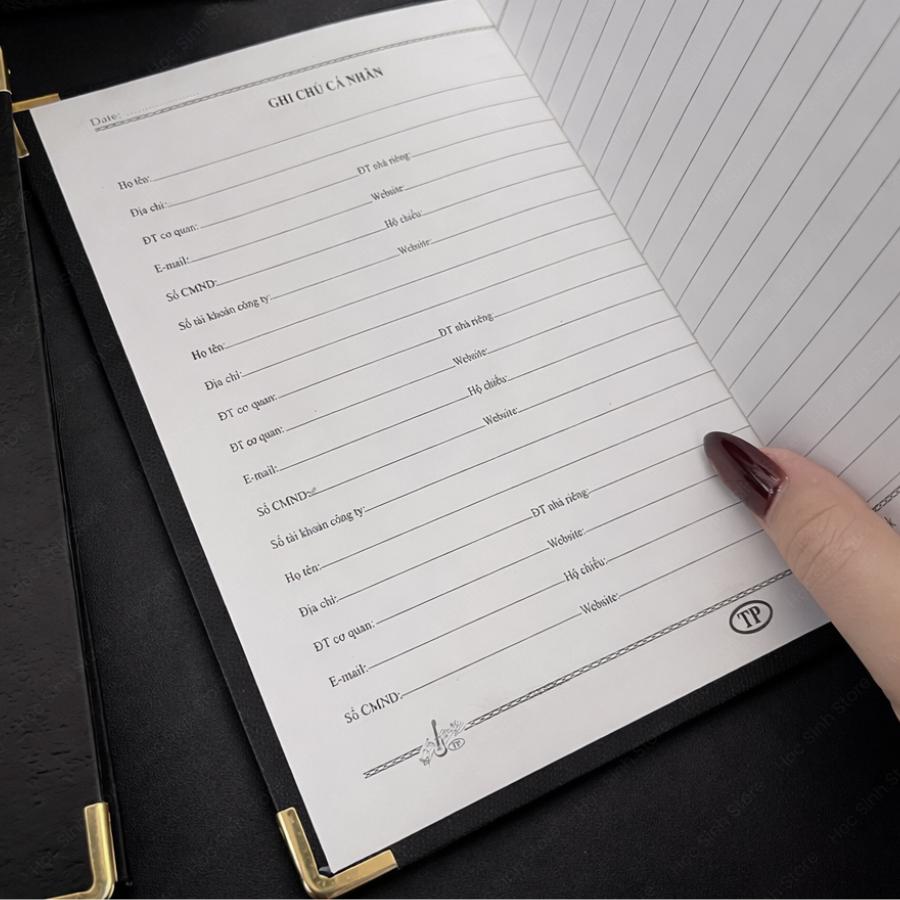 Date:
GHI CHÚ CÁ NHÂN
Họ tên:
Địa chỉ:
ĐT cơ quan: ĐT nhà riêng:
E-mail: Website:
Số CMND: Hộ chiếu:
Số tài khoản công ty: Website:
Họ tên:
Địa chỉ:
ĐT cơ quan: ĐT nhà riêng
ĐT cơ quan: Website:
E-mail: Hộ chiếu:
Số CMND: Website:
Số tài khoản công ty:
Họ tên:
Địa chỉ: ĐT nhà riêng:
ĐT cơ quan: Website:
E-mail: Hộ chiếu:
Số CMND: Website:
TP
TP
k
Học Sinh Store